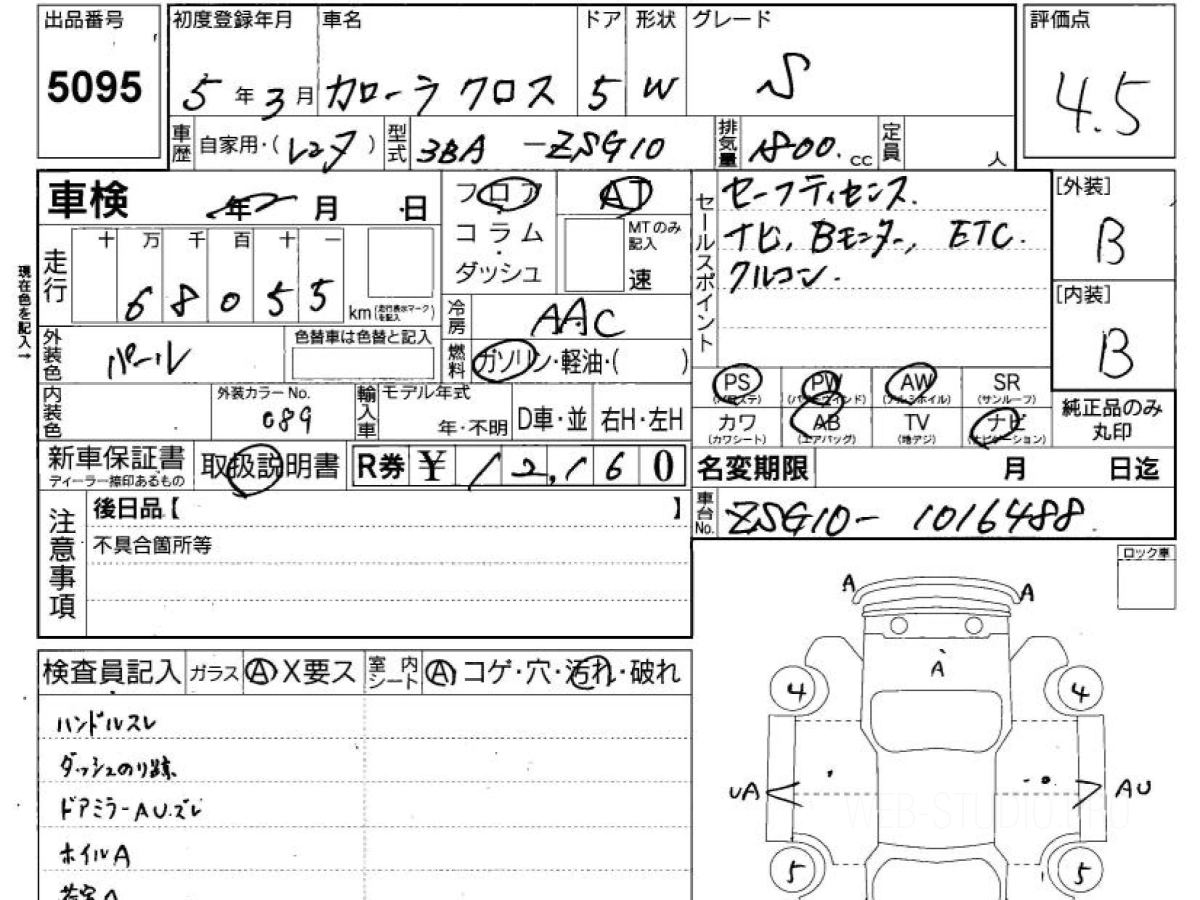 出品番号 初度登録年月 車名 ドア 形状 グレード 評価点
5095 5年3月 カローラクロス 5 W S 4.5
車歴 自家用・(レンタ) 型式 3BA-ZSG10 排気量 1800.cc 定員 人
車検 年 月 日
フロア
コラム
ダッシュ
AT
MTのみ記入
速
セールスポイント
セーフティセンス.
ナビ, Bモニター, ETC.
クルコン.
[外装]
B
[内装]
B
現在色を記入→
走行 十万千百十一
68055 km(走行表示マークを記入)
冷房 AAC
外装色 パール 色替車は色替と記入
燃料 ガソリン・軽油・( )
内装色 外装カラーNo. 089
輸入車 モデル年式 年・不明 D車・並 右H・左H
PS PW AW SR
(パワステ) (パワーウインド) (アルミホイル) (サンルーフ)
カワ AB TV ナビ
(カワシート) (エアバッグ) (地デジ) (ナビゲーション)
純正品のみ丸印
新車保証書 取扱説明書 R券 ¥ 12,160
ディーラー捺印あるもの
名変期限 月 日迄
車台No. ZSG10-1016488
注意事項
後日品【 】
不具合箇所等
ロック車
検査員記入 ガラス A X要ス 室内シート A コゲ・穴・汚れ・破れ
ハンドルスレ
ダッシュのり跡.
ドアミラーAU.ズレ
ホイルA
A A
A
4 4
UA AU
5 5
WEB-STUDIO.PRO